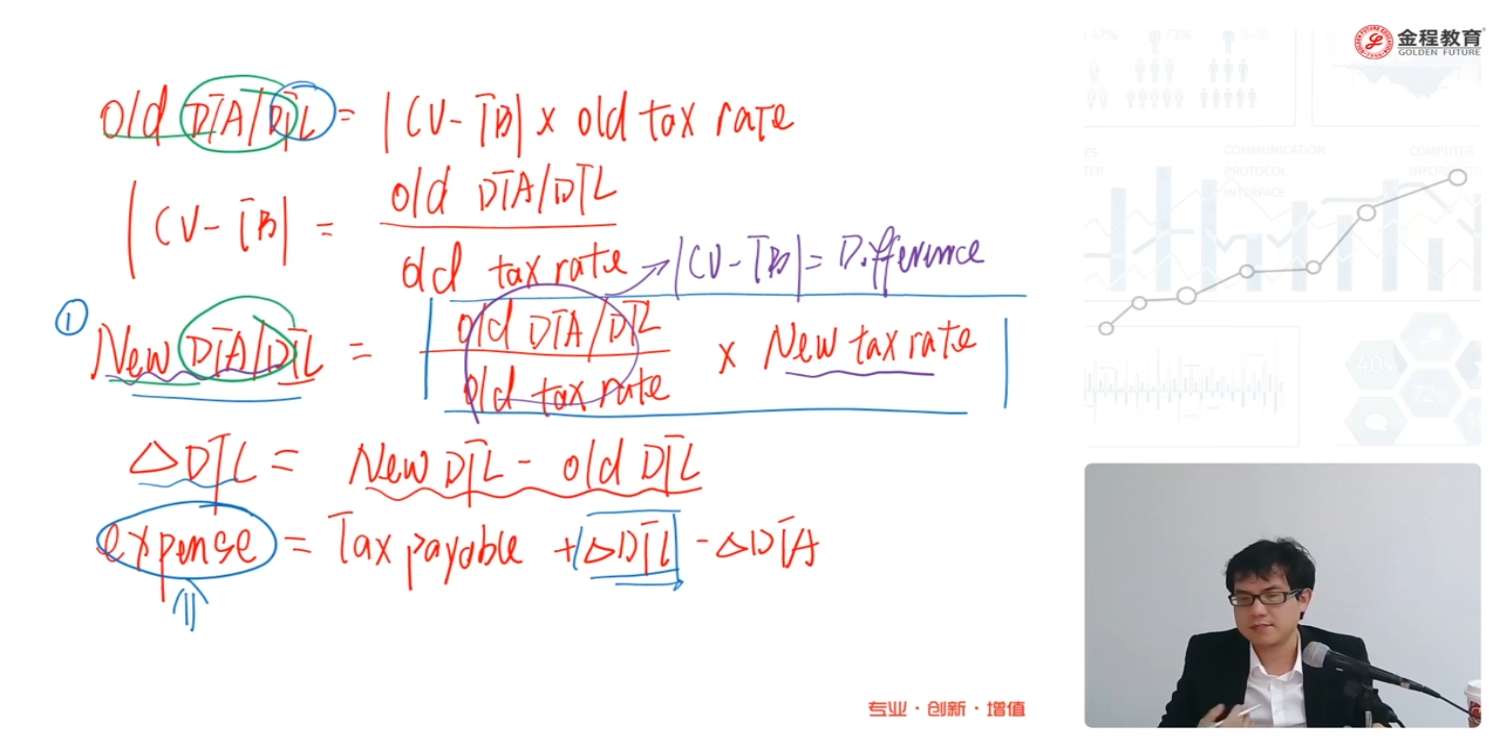 金程教育
GOLDEN FUTURE
old DTA/DTL = |CV - TB| x old tax rate
|CV - TB| = old DTA/DTL
old tax rate
|CV - TB| = Difference
① New DTA/DTL = old DTA/DTL x New tax rate
old tax rate
△DTL = New DTL - old DTL
expense = Tax payable + △DTL - △DTA
COMMUNICATION
PROTOCOL
INTERFACE
COMPUTER
40%
72%
专业·创新·增值